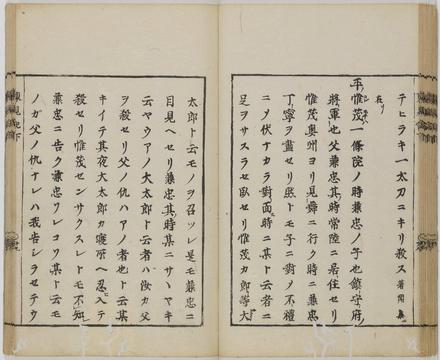 テヒラキ一太刀ニキリ殺ス 著聞集
在リ
平惟茂一條院ノ時兼忠ノ子也鎮守府
將軍也父兼忠其時常陸ニ居住セリ
惟茂奥州ヨリ見舞ニ行ク時ニ兼忠
丁寧ヲ盡セリ然トモ子ニ對ノ不禮
ニノ伏ナカラ對面時ニ其ト云者ニ
足ヲサスラセ臥セリ惟茂カ郎等大
太郎ト云モノヲ召ツレ是モ兼忠ニ
目見ヘセリ兼忠其時其ニサヽヤキ
云ヤウアノ大太郎ト云者ハ汝カ父
ヲ殺セリ父ノ仇ハアノ者也ト云其
キイテ其夜大太郎カ寢所ヘ忍入テ
殺セリ惟茂センサクスレトモ不知
兼忠ニ告ク兼忠ワレコソ其ト云モ
ノガ父ノ仇ナレハ我告シラセテウ